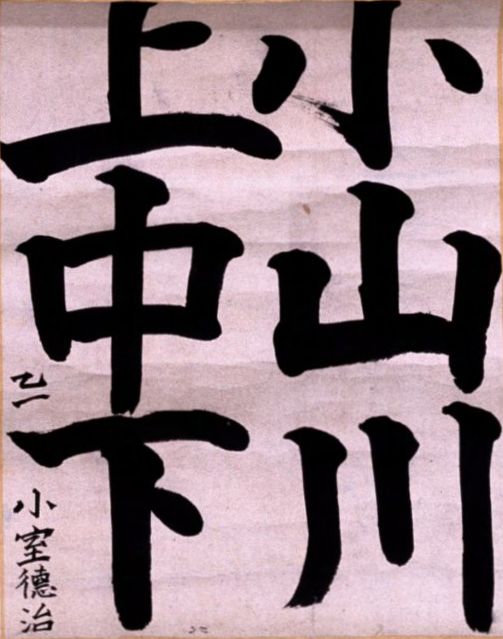 小山川
上中下
乙一 小室德治